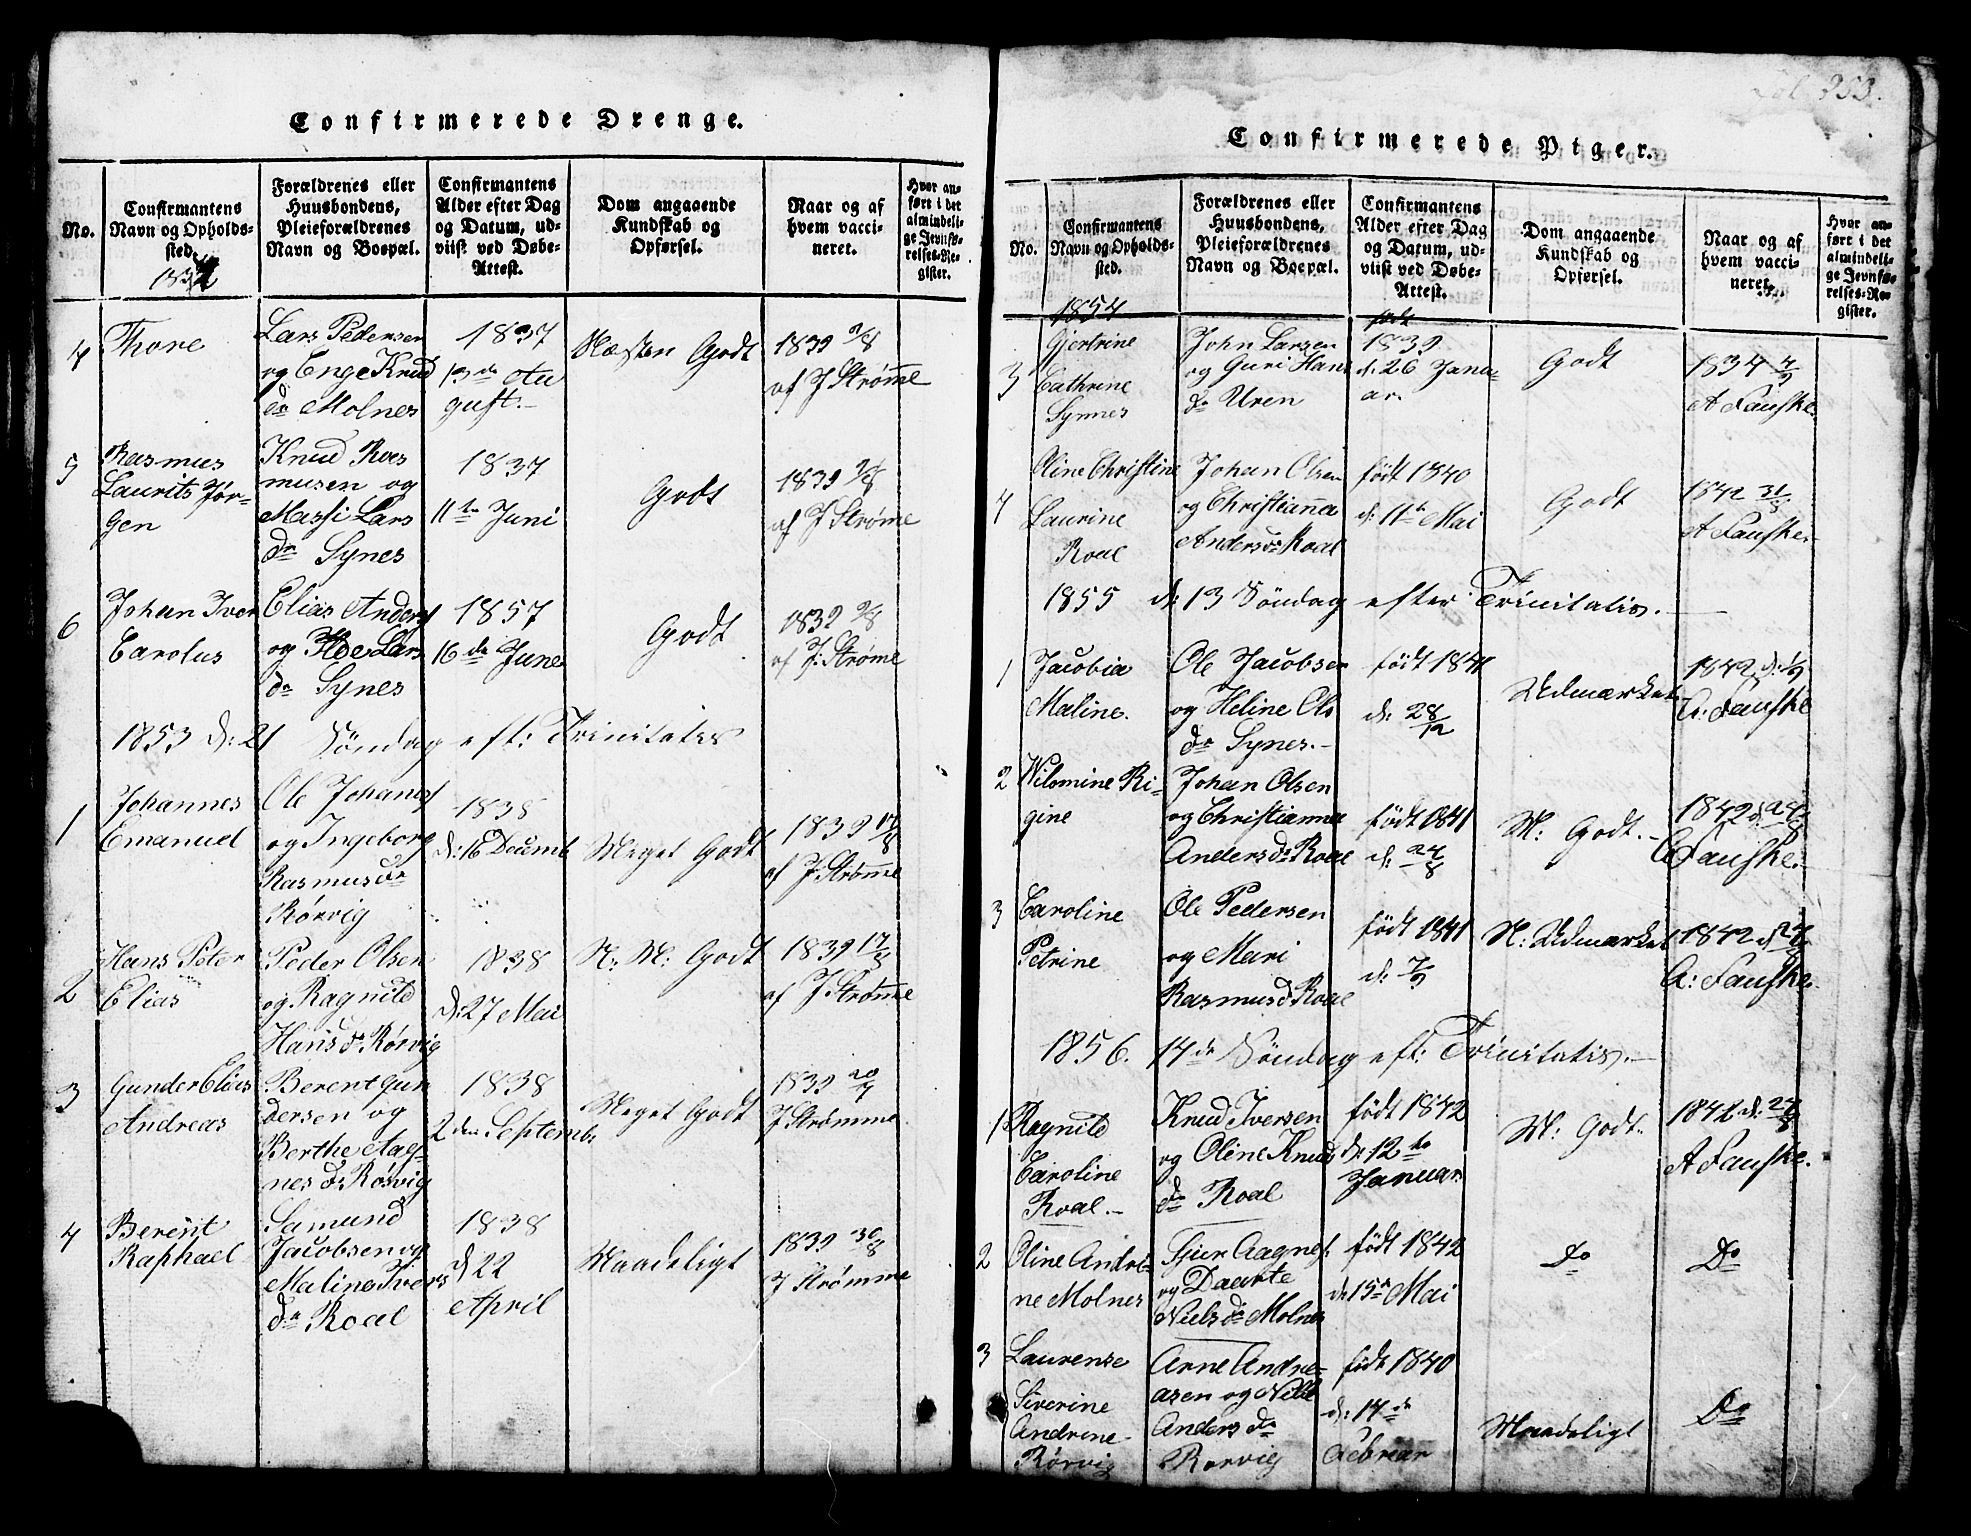 Confirmerede Drenge.
No.
Confirmantens
Navn og Opholds-
sted.
Forældrenes eller
Huusbondens,
Pleieforældrenes
Navn og Boepæl.
Confirmantens
Alder efter Dag
og Datum, ud-
viist ved Døbe-
Attest.
Dom angaaende
Kundskab og
Opførsel.
Naar og af
hvem vacci-
neret.
Hvor an-
ført i det
almindeli-
ge Jevnfø-
relses-Re-
gister.
4
Thore
Lars Pedersen
og Enge Knud
dr Molnes
1837
13de Au
gust.-
Næsten Godt
1839 2/8
af J Strømme
5
Rasmus
Laurits Jør-
gen
Knud Ras
musen og
Massi Lars
dr Synes
1837
11te Juni
Godt
1839 2/8
af J Strøme
6
Johan Iver
Carolus
Elias Anders
og Lars
dr Synes
1857
16de June
Godt
1839 2/8
af J: Strøme
1853 d: 21 Söndag eft: Trinitatis
1
Johannes
Emanuel
Ole Johanes
og Ingeborg
Rasmusdr
Rörvig
1838
d: 16 Decemb
Meget Godt
1839 17/8
af J: Strømme
2
Hans Peter
Elias
Peder Olsen
og Ragnild
Hans dr Rørvig
1838
d: 27 Mai
N. M: Godt
1839 17/8
af J Strømme
3
Gunder Elias
Andreas
Berent Gun
dersen og
Berthe Aag-
nes dr Rörvig
1838
2den Septemb:
Meget Godt
1839 20/7
J Strømme
4
Berent
Raphael
Samund
Jacobsen og
Maline Ivers
dr Roal
1838
d 22
April
Maadeligt
1839 30/8
J Strømme
353.
Confirmerede Piger.
No.
Confirmantens
Navn og Opholds-
sted.
Forældrenes eller
Huusbondens,
Pleieforældrenes
Navn og Boepæl.
Confirmantens
Alder efter Dag
og Datum, ud-
viist ved Døbe-
Attest.
Dom angaaende
Kundskab og
Opførsel.
Naar og af
hvem vacci-
neret.
Hvor an-
ført i det
almindeli-
ge Jevnfø-
relses-Re-
gister.
1854
3
Gjertrine
Cathrine
Synnes
John Larsen
og Guri Hans
dr Uren
født
1839
d: 26 Janu-
ar.
Godt
1834 4/9
A Fauske.
4
Oline Christine
Laurine
Roal
Johan Olsen
og Christianna
Anders dr Roal
født 1840
d: 11te Mai
Godt
1842 31/8
A Fauske.
1855 d: 13 Söndag efter Trinitatis.
1
Jacobia
Maline.
Ole Jacobsen
og Heline Ols
dr Synes.-
født 1841
d: 28/12
Udmærket
1842 d: 1/9
A: Fauske
2
Vilomine Ri-
gine
Johan Olsen
og Christianna
Anders dr Roal
født 1841
d: 24/8
M: Godt.-
1842 d. 28/8
A Fauske.
3
Caroline
Petrine
Ole Pedersen
og Mari
Rasmusd Roal
født 1841
d: 7/9
N: Udmærket
1842 d. 28/8
A: Fauske.
1856. 14de Söndag eft: Trinitatis.-
1
Ragnild
Caroline
Roal.-
Knud Iversen
og Oline Knuds
dr Roal
født 1842
d: 12te
Januar
M: Godt.
1842 d: 28/8
A Fauske.
2
Oline Andri-
ne Molnes
og Daarte
Niels dr Molnes
født 1842
d: 15de Mai
Do
Do
3
Laurense
Siverine
Andrine
Rørvig
Arne Andre-
asen og Nille
Anders dr
Rørvig
født 1840
d: 14de
Februar
Maadeligt
Do